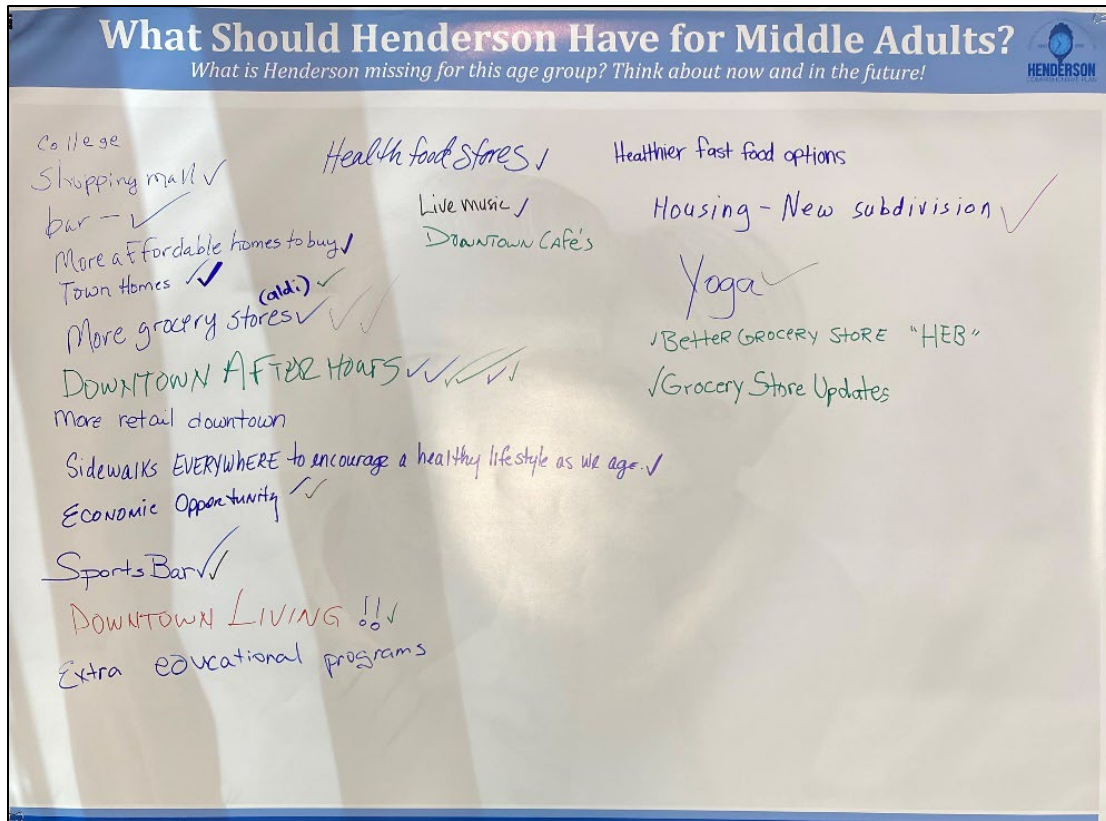 What Should Henderson Have for Middle Adults?
What is Henderson missing for this age group? Think about now and in the future!
HENDERSON
COMPREHENSIVE PLAN
College
Shopping mall ✓
bar - ✓
More affordable homes to buy ✓
Town Homes ✓✓
(aldi) ✓
More grocery stores ✓✓✓
DOWNTOWN AFTER HOURS ✓✓✓✓✓✓
More retail downtown
Sidewalks EVERYWHERE to encourage a healthy lifestyle as we age. ✓
ECONOMIC OppoRtuNity ✓✓
Sports Bar ✓✓
DOWNTOWN LIVING !! ✓
Extra educational programs
Health food stores ✓
Live music ✓
DOWNTOWN CAFé's
Healthier fast food options
Housing - New subdivision ✓
Yoga ✓
✓ BetteR GROCERY StoRE "HEB"
✓ Grocery Store Updates